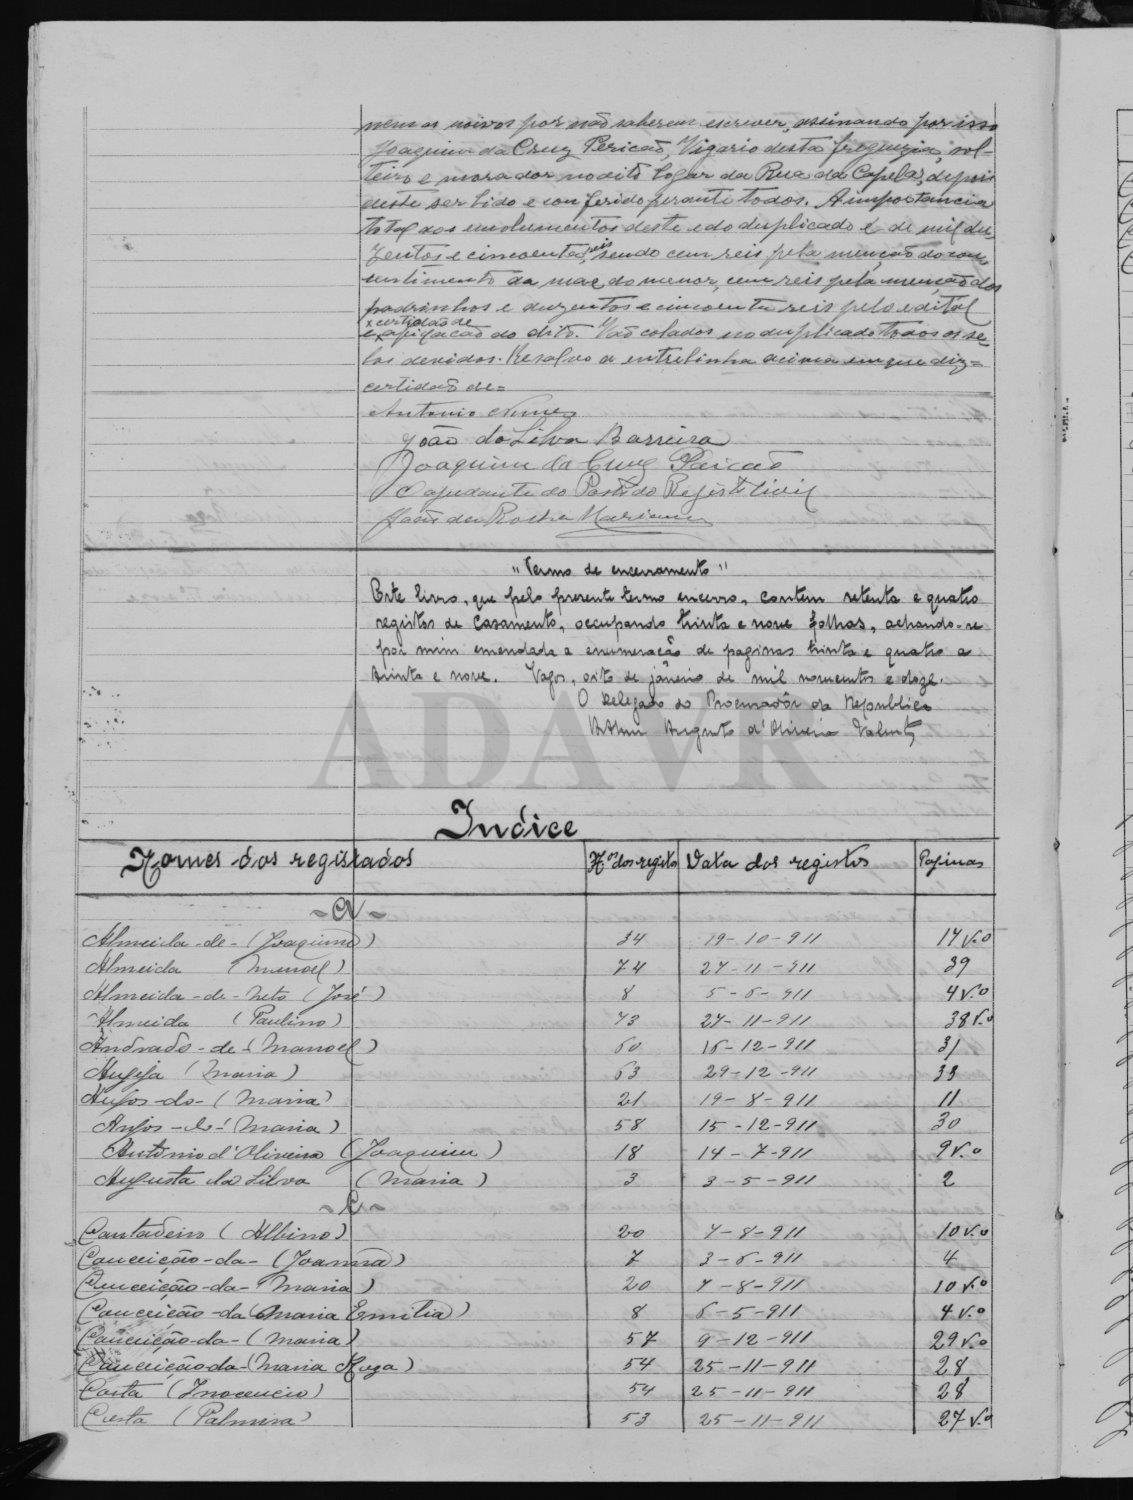 nem os noivos por não saberem escrever, assinando por isso
Joaquim da Cruz Pericão, Vigario desta freguezia, sol-
teiro e morador no dito logar da Rua da Capela, depois
deste ser lido e conferido perante todos. A importancia
total dos emolumentos deste e do duplicado é de mil du-
zentos e cincoenta reis, sendo cem reis pela menção do con-
sentimento da mae do menor, cem reis pela menção dos
padrinhos e duzentos e cincoenta reis pelo edital
x certidão de
e x afixação do dito. Vão colados no duplicado todos os se-
los devidos. Resalvo a entrelinha acima em que diz=
certidão de=
Antonio Nunes
João da Silva Barreira
Joaquim da Cruz Pericão
O ajudante do Posto do Registo Civil
João da Rocha
"Termo de encerramento"
Este livro, que pelo presente termo encerro, contem setenta e quatro
registos de casamento, occupando trinta e nove folhas, achando-se
por mim emendada a enumeração de paginas trinta e quatro a
trinta e nove. Vagos, oito de janeiro de mil novecentos e doze.
O Delegado do Procurador da Republica
Augusto d'Oliveira Valente
ADAVR
Indice
Nomes dos registados Nos dos registos Data dos registos Paginas
- A -
Almeida - de - (Joaquim) 34 19-10-911 17 v.o
Almeida (Manoel) 74 27-11-911 39
Almeida - de - Neto (José) 8 5-6-911 4 v.o
Almeida (Paulino) 73 27-11-911 38 v.o
Andrade - de - (Manoel) 60 16-12-911 31
(Maria) 63 29-12-911 33
Anjos - do - (Maria) 21 19-8-911 11
Anjos - do - (Maria) 58 15-12-911 30
Antonio d'Oliveira (Joaquim) 18 14-7-911 9 v.o
Augusta da Silva (Maria) 3 3-5-911 2
- C -
Cantadeiro (Albino) 20 7-8-911 10 v.o
Conceição - da - (Joanna) 7 3-6-911 4
Conceição - da - (Maria) 20 7-8-911 10 v.o
Conceição - da (Maria Emilia) 8 6-5-911 4 v.o
Conceição - da - (Maria) 57 9-12-911 29 v.o
Conceição da - (Maria Ruga) 54 25-11-911 28
Costa (Inocencio) 54 25-11-911 28
Costa (Palmira) 53 25-11-911 27 v.o